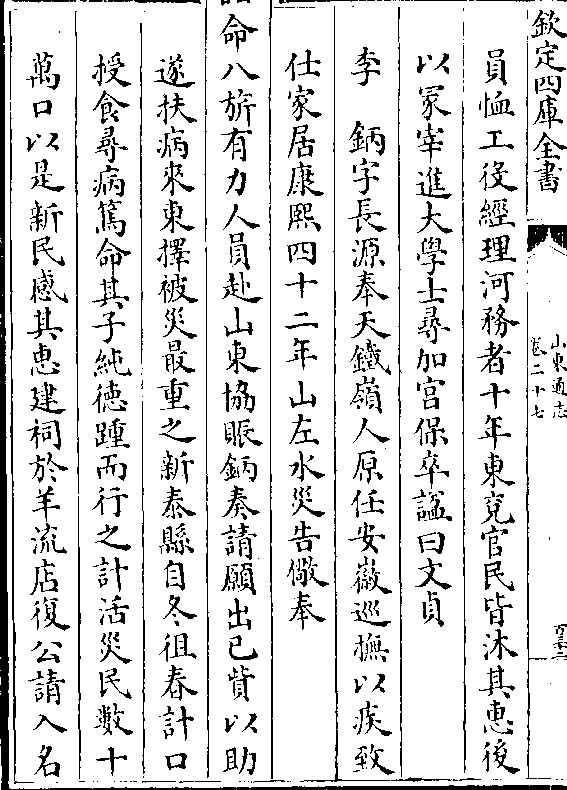 欽定四庫全書
山東通志
卷二十七
員恤工役經理河務者十年東兗官民皆沐其惠後
以冢宰進大學士尋加宫保卒諡曰文貞
李 鈵字長源奉天鐵嶺人原任安徽巡撫以疾致
仕家居康熙四十二年山左水災告儆奉
命八旂有力人員赴山東協賑鈵奏請願出己貲以助
遂扶病來東擇被災最重之新泰縣自冬徂春計口
授食尋病篤命其子純徳踵而行之計活災民數十
萬口以是新民感其惠建祠於羊流店復公請入名